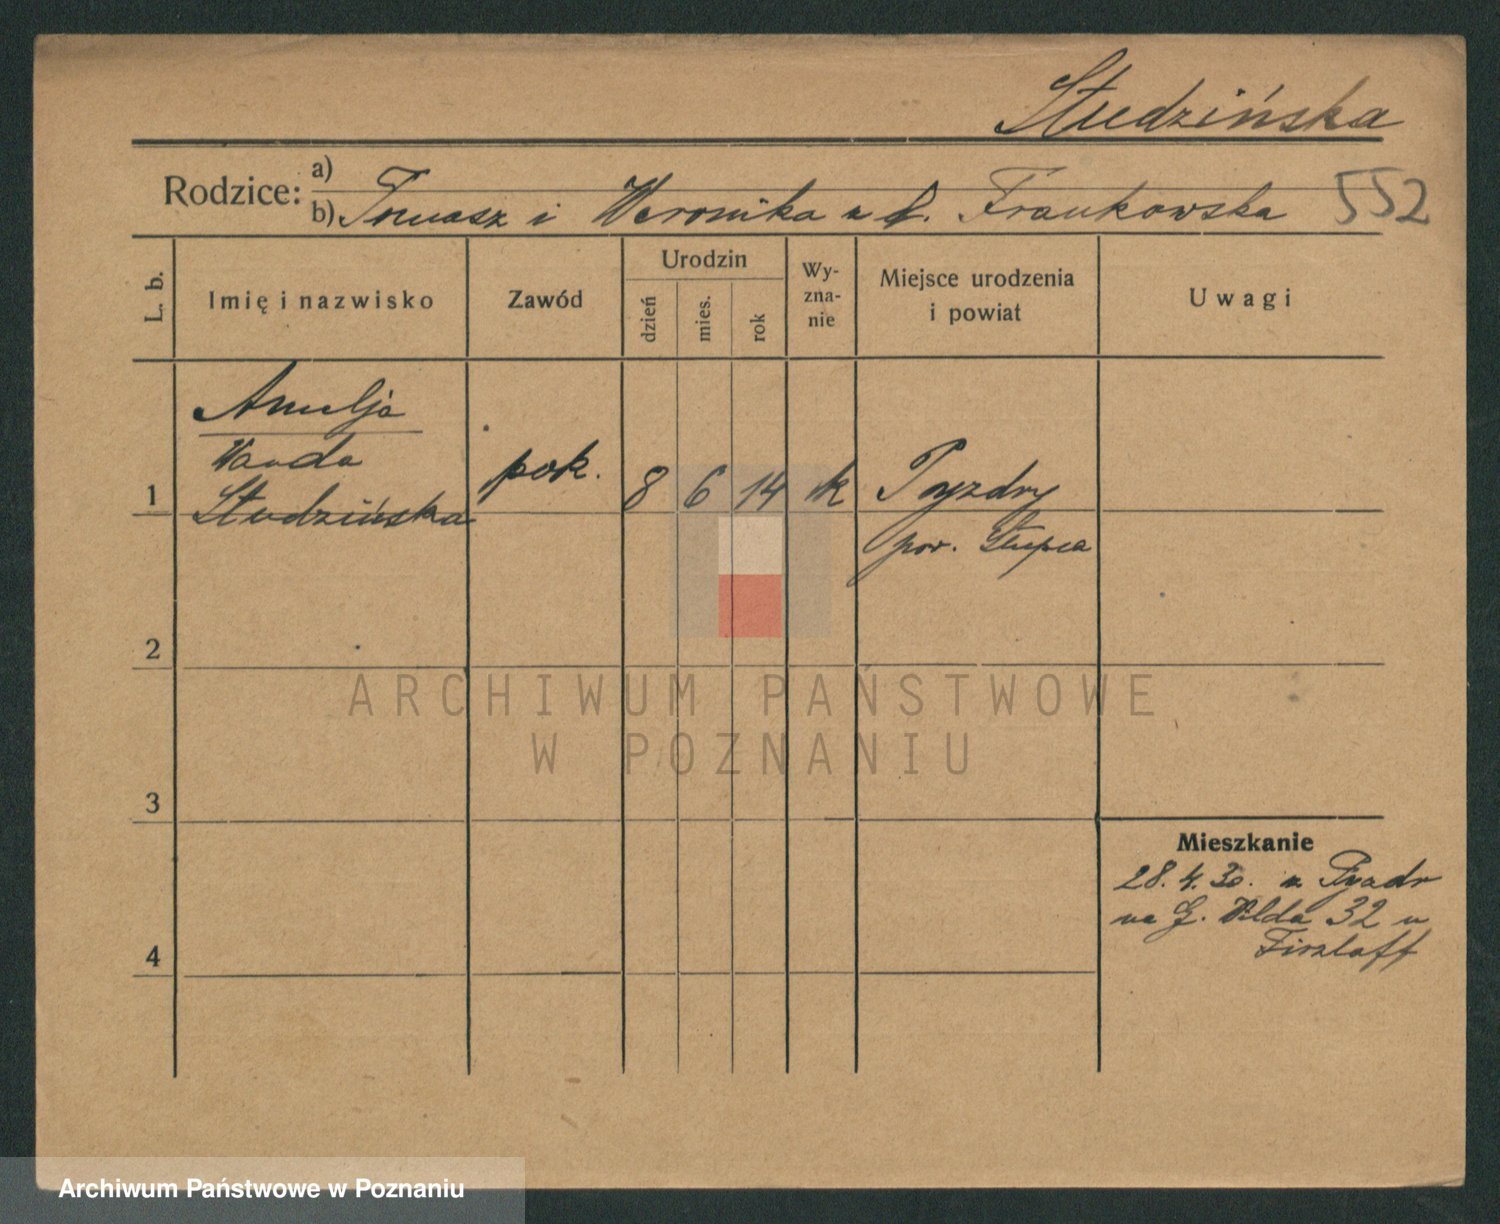 Studzińska
Rodzice: a)
b) Tomasz i Weronika z d. Frankowska 552
L. b.
Imię i nazwisko
Zawód
Urodzin
dzień
mies.
rok
Wy-
zna-
nie
Miejsce urodzenia
i powiat
Uwagi
Amelja
Wanda
1 Studzińska pok. 8 6 14 rk Pyzdry
pow. Słupca
2
ARCHIWUM PAŃSTWOWE
W POZNANIU
3
Mieszkanie
28.4.30. z Pyzdr
na G. Wilda 32 u
4
Archiwum Państwowe w Poznaniu